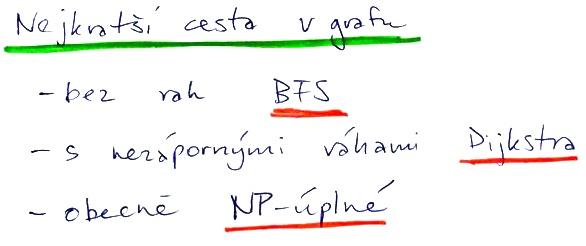 Nejkratší cesta v grafu
- bez vah BFS
- s nezápornými váhami Dijkstra
- obecně NP-úplné